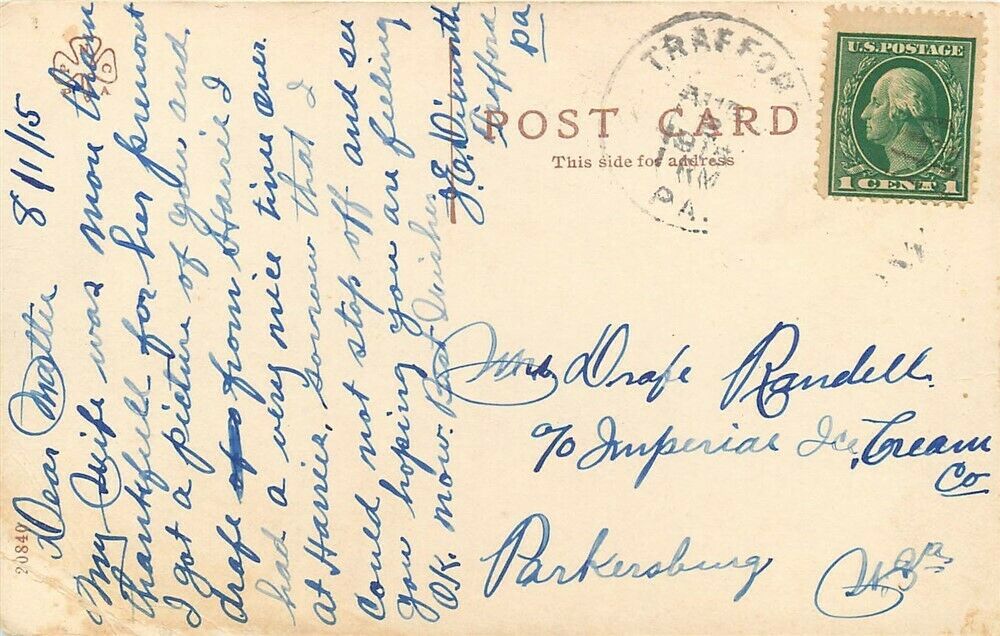 8/1/15
Dear Mattie
My Wife was more than
thankfull for her present
I got a picture of you and
drafe from Harrie I
had a very nice time over
at Harries, sorow that I
Could not stop off and see
you hoping you are feeling
OK. now. Best Wishes
J.C. Dimorth
Trafford
Pa
POST CARD
This side for address
TRAFFOR
PA.
U.S. POSTAGE
1 CENT 1
Mrs Drafe Randell
c/o Imperial Ice Cream
Co
Parkersburg
W Va
20840